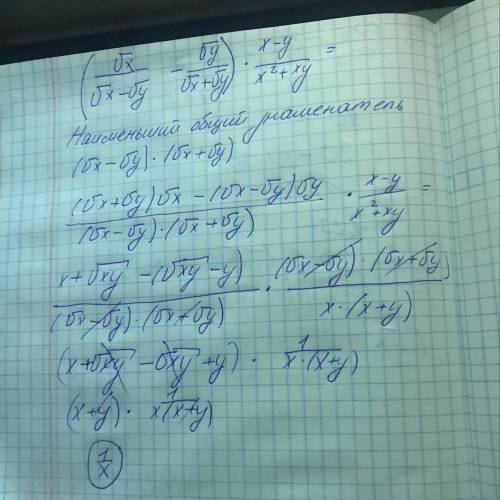 (√x/(√x-√y) - √y/(√x+√y)) · (x-y)/(x²+xy) =
Наименьший общий знаменатель
(√x-√y)·(√x+√y)
((√x+√y)√x-(√x-√y)√y)/((√x-√y)·(√x+√y)) · (x-y)/(x²+xy) =
(x+√xy-(√xy-y))/((√x-√y)·(√x+√y)) · ((√x-√y)·(√x+√y))/(x·(x+y))
(x+√xy-√xy+y) · 1/(x·(x+y))
(x+y) · 1/(x(x+y))
1/x